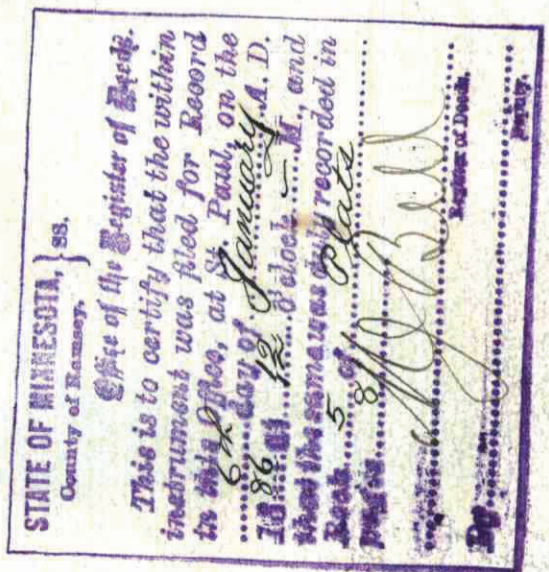 STATE OF MINNESOTA, } SS.
County of Ramsey,
Office of the Register of Deeds.
This is to certify that the within
instrument was filed for Record
in this Office, at St. Paul, on the
6th day of January A. D.
1886 at 12 o'clock - M., and
that the same was duly recorded in
Book 5 of Plats
page 8
Bell
Register of Deeds.
By
Deputy.